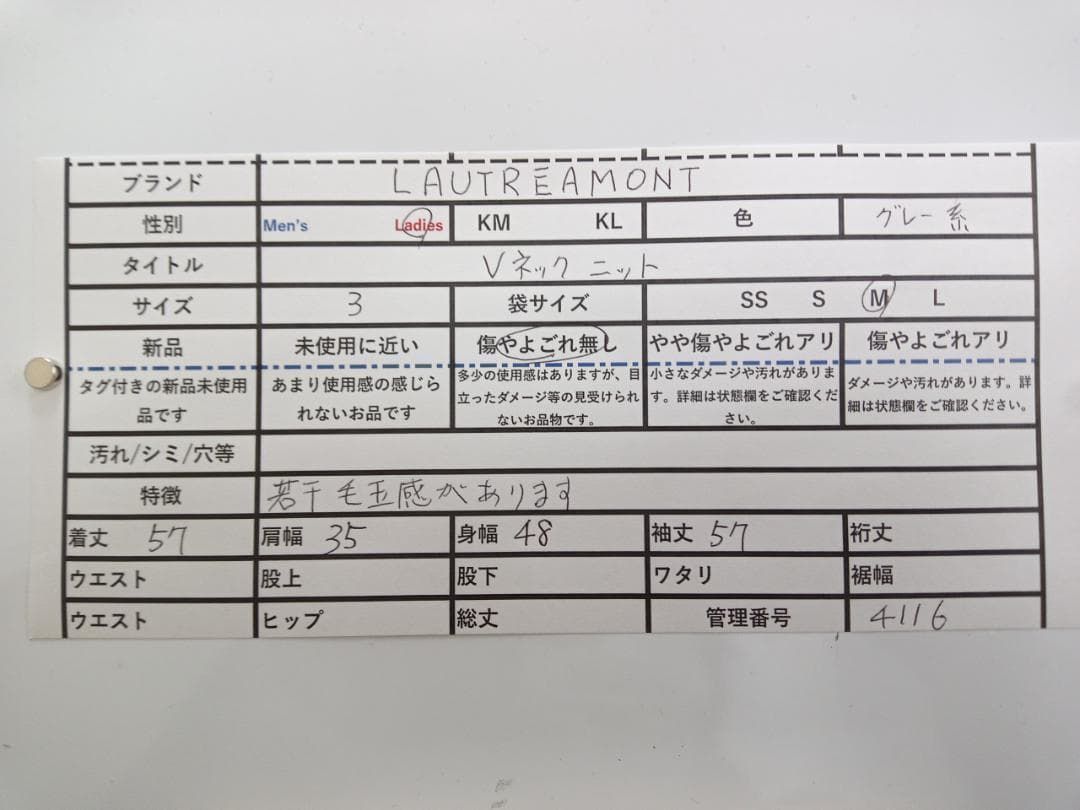 ブランド LAUTREAMONT
性別 Men's Ladies KM KL 色 グレー系
タイトル Vネック ニット
サイズ 3 袋サイズ SS S M L
新品 未使用に近い 傷やよごれ無し やや傷やよごれアリ 傷やよごれアリ
タグ付きの新品未使用
品です
あまり使用感の感じら
れないお品です
多少の使用感はありますが、目
立ったダメージ等の見受けられ
ないお品物です。
小さなダメージや汚れがありま
す。詳細は状態欄をご確認くだ
さい。
ダメージや汚れがあります。詳
細は状態欄をご確認ください。
汚れ/シミ/穴等
特徴 若干毛玉感があります
着丈 57 肩幅 35 身幅 48 袖丈 57 裄丈
ウエスト 股上 股下 ワタリ 裾幅
ウエスト ヒップ 総丈 管理番号 4116